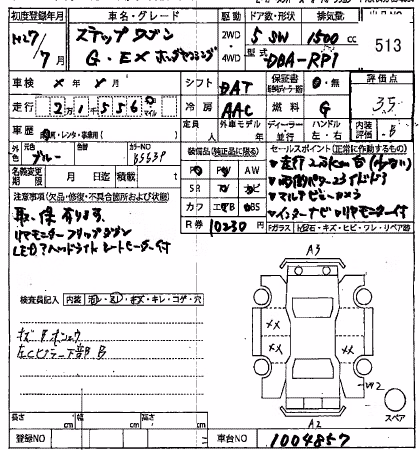 初度登録年月 車名・グレード 駆動 ドア数・形状 排気量
H27/7月 ステップワゴン 2WD 4WD 5 SW 1500 cc 513
G・EX ホンダセンシング 型式 DBA-RP1
車検 × 年 × 月 シフト DAT 保証書 有・無 評価点
走行 2万1千556 km マイル 冷房 AAC 燃料 G 3.5
車歴 自家・レンタ・事業用( ) 定員 人 外車モデル 年 ディーラー 並行 ハンドル 左・右 内装評価 B
外色 元色 ブルー 色替 カラーNO B553P
装備品(純正品に限る) セールスポイント(正常に作動するもの)
名義変更期限 月 日迄 積載量 t
PS PW AW
SR ナビ
カワ エアB ABS
R券 10230 円
走行2.1万km台
両側パワースライドドア
マルチビューカメラ
インターナビ リヤモニター付
注意事項(欠品・修復・不具合箇所および状態)
取・保有ります
リヤモニター フリップダウン
LEDヘッドライト シートヒーター付
Fガラス
検査員記入 内装 キレ・コゲ・穴
左Cピラー下部B
A3
×× ××
W2
A2
スペア
長さ cm 幅 cm 高さ cm
登録NO 車台NO 1004857